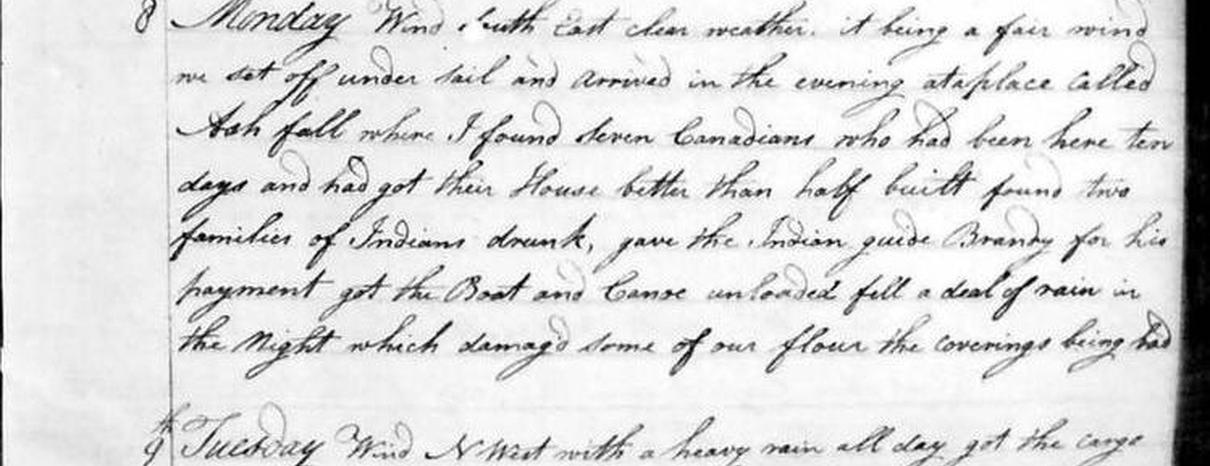 8 Monday Wind South East clear weather. it being a fair wind
we set off under sail and arrived in the evening at a place called
Ash fall where I found seven Canadians who had been here ten
days and had got their House better than half built found two
families of Indians drunk, gave the Indian guide Brandy for his
payment got the Boat and Canoe unloaded fell a deal of rain in
the Night which damag'd some of our flour the coverings being bad
9th Tuesday Wind N West with a heavy rain all day got the cargo